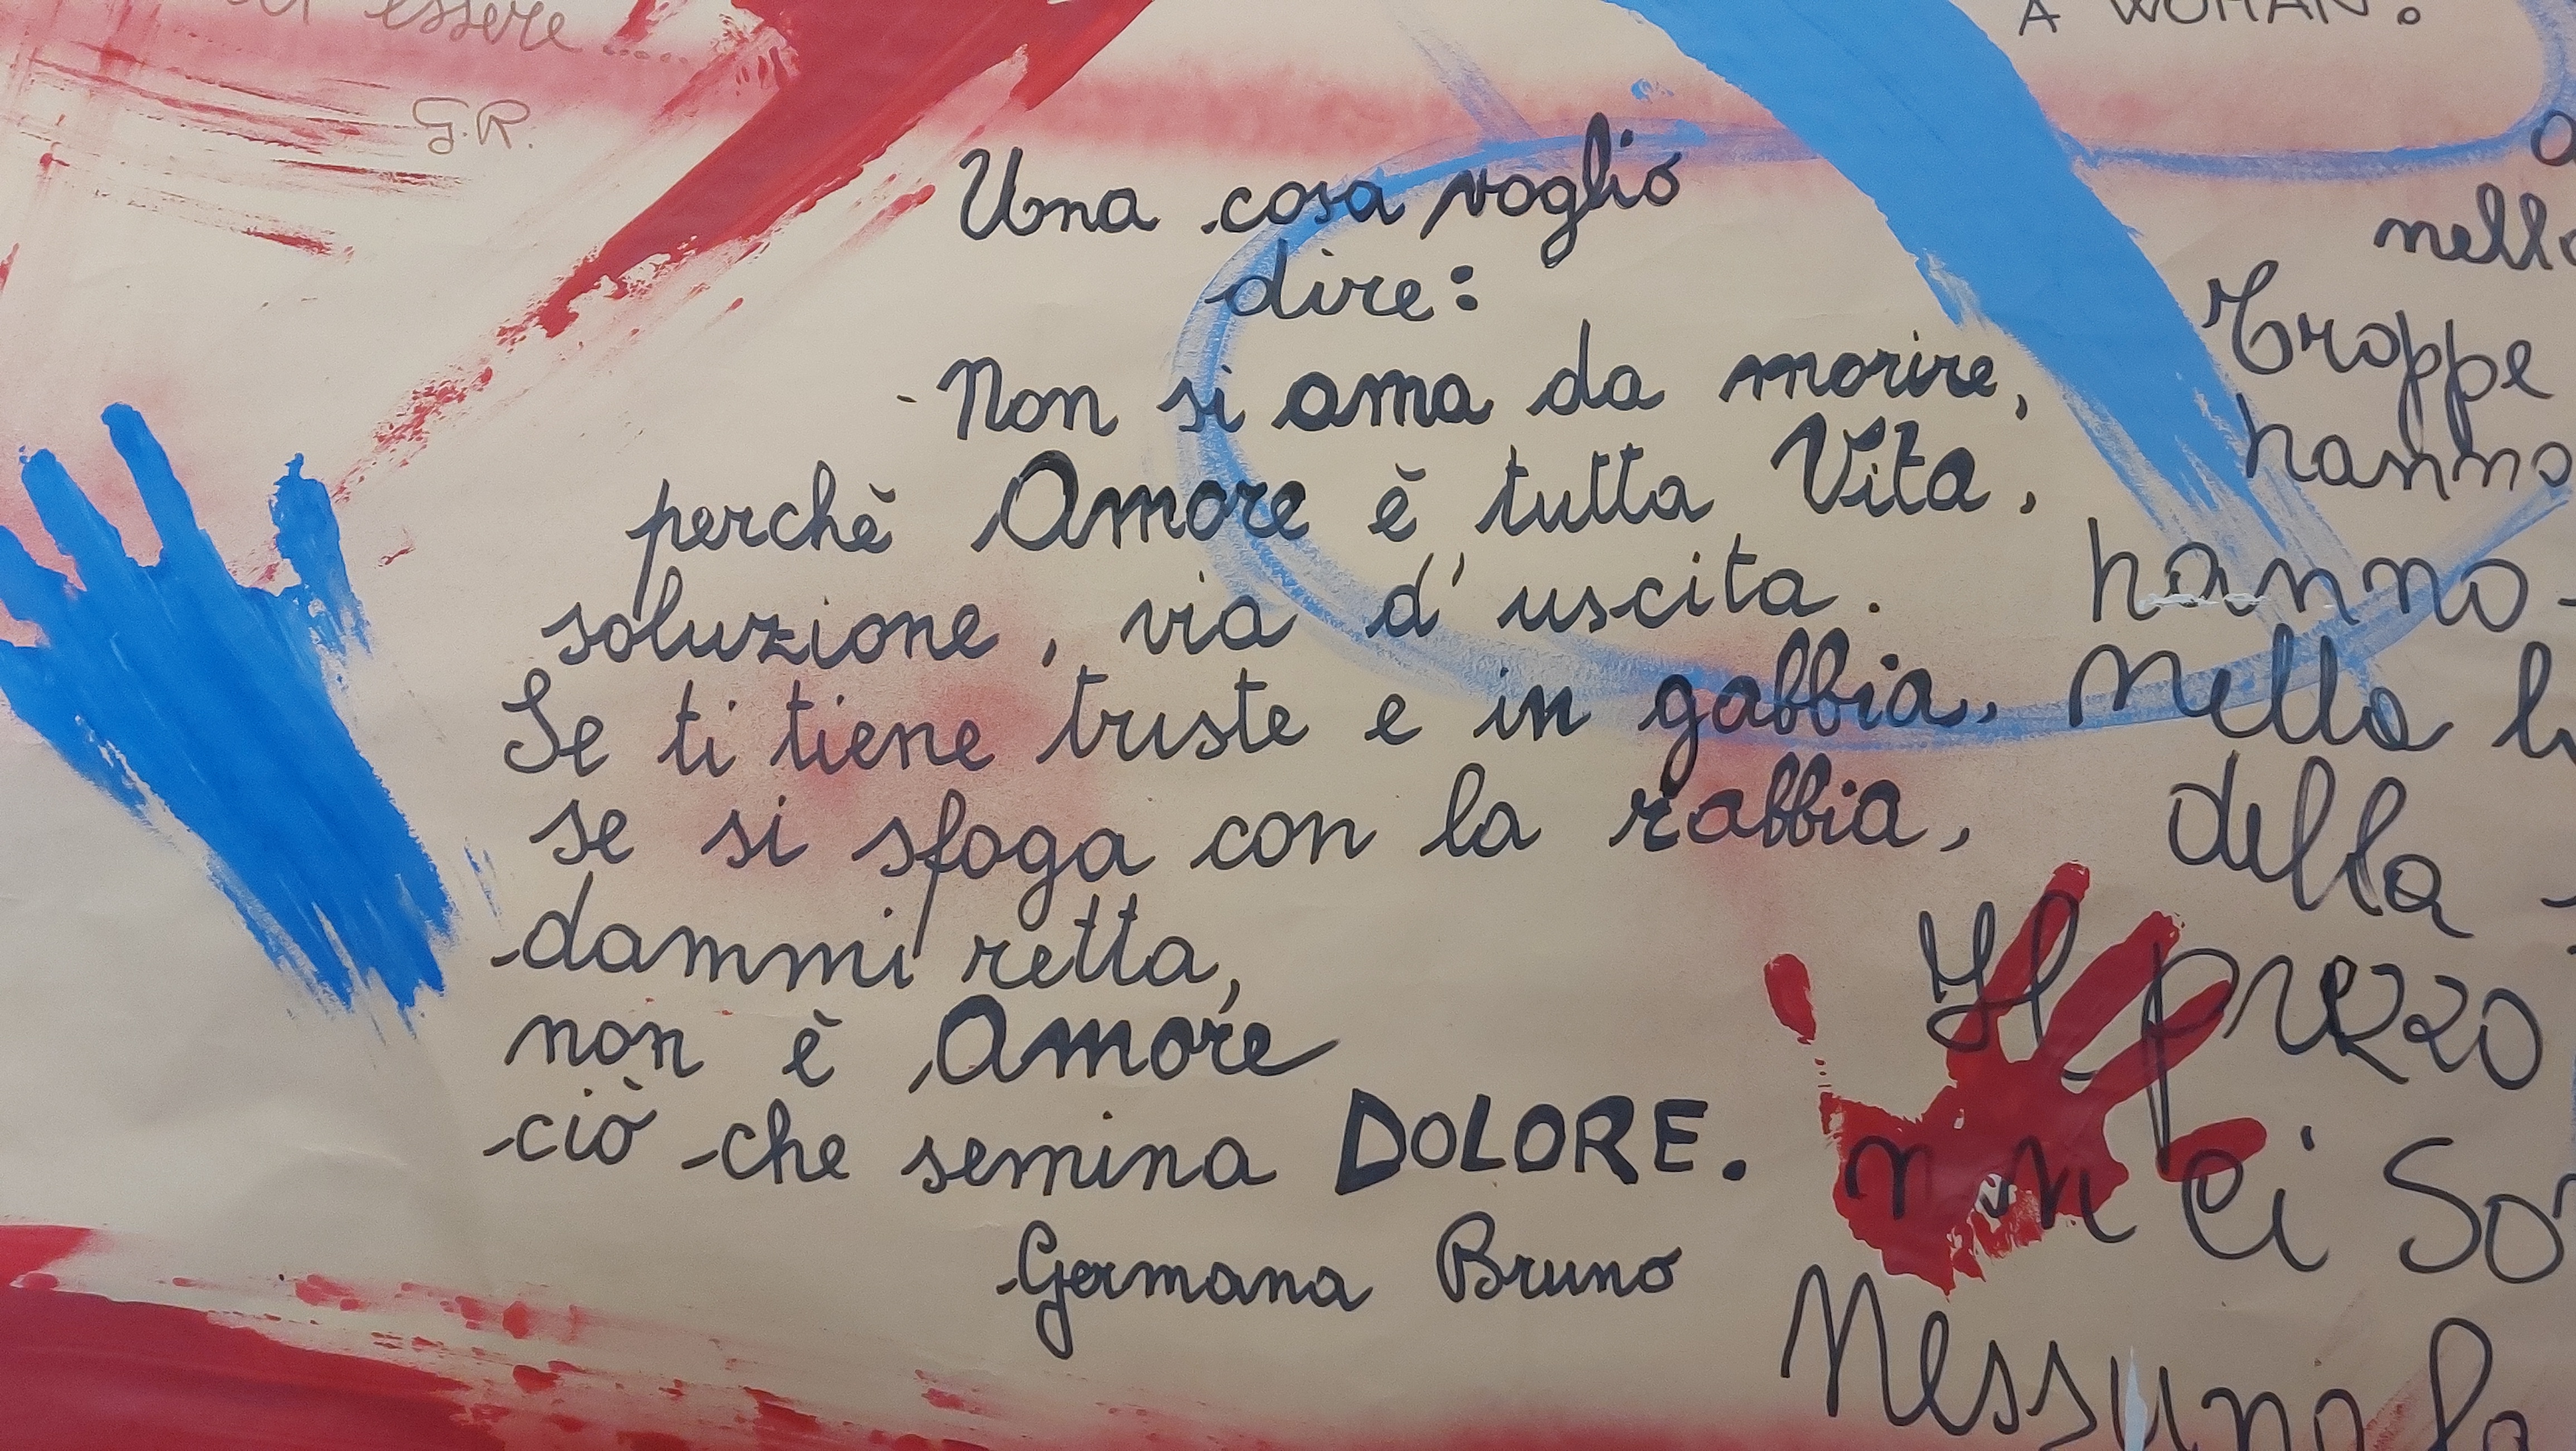 essere.....
G.R.
A WOMAN.
Una cosa voglio
dire:
Non si ama da morire,
perchè Amore è tutta Vita,
soluzione, via d'uscita.
Se ti tiene triste e in gabbia,
se si sfoga con la rabbia,
dammi retta,
non è Amore
ciò che semina DOLORE.
Germana Bruno
Troppe
hanno
hanno
Nella
della
Il
ci
Nessuno